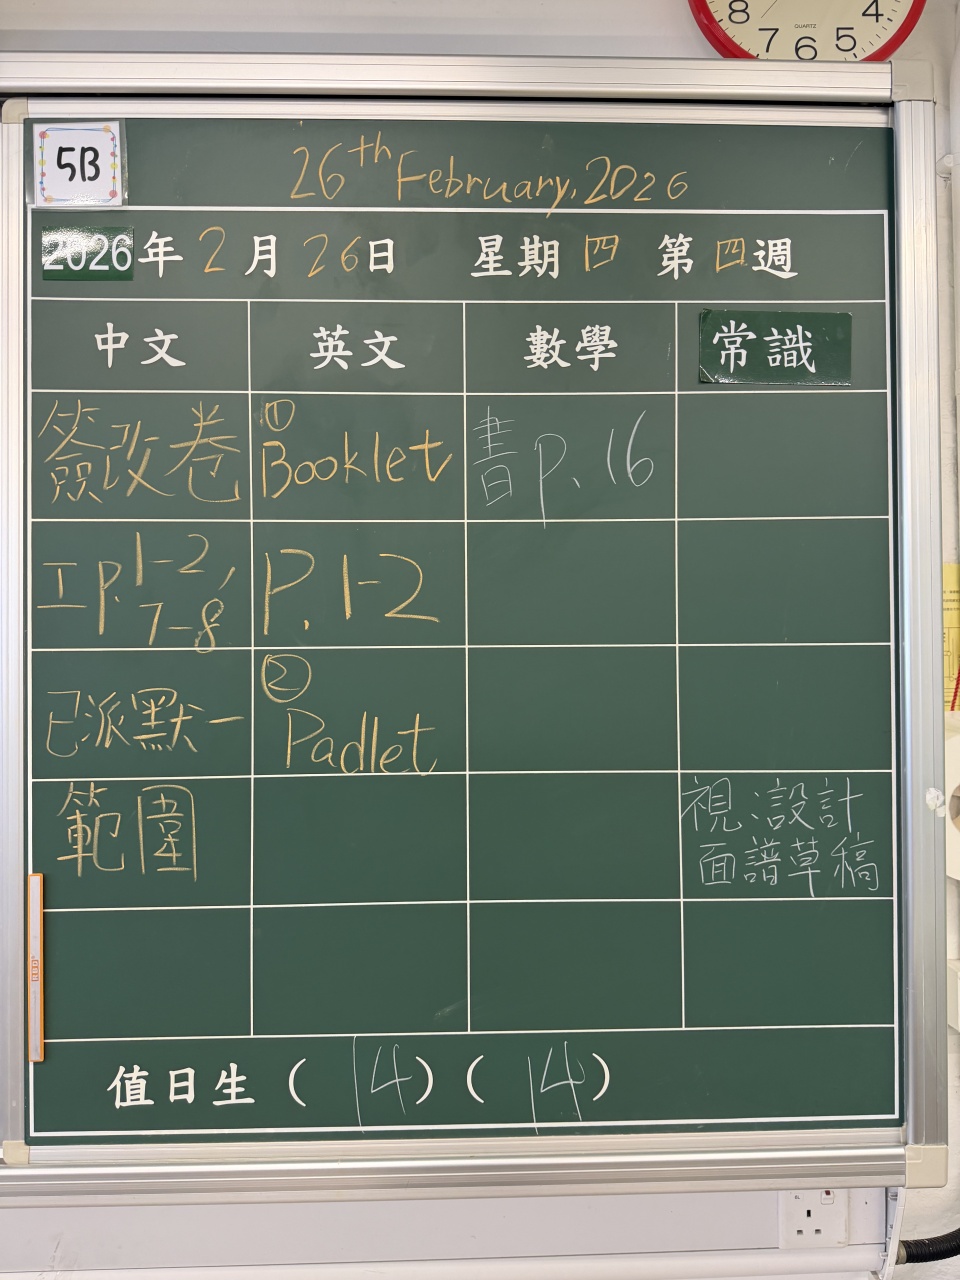 8 7 6 5 4
QUARTZ
5B
26th February, 2026
2026年2月26日 星期四 第四週
中文 英文 數學 常識
簽改卷
工P.1-2,
7-8
已派默一
範圍
①
Booklet
P.1-2
②
Padlet
書P.16
視:設計
面譜草稿
值日生(14)(14)